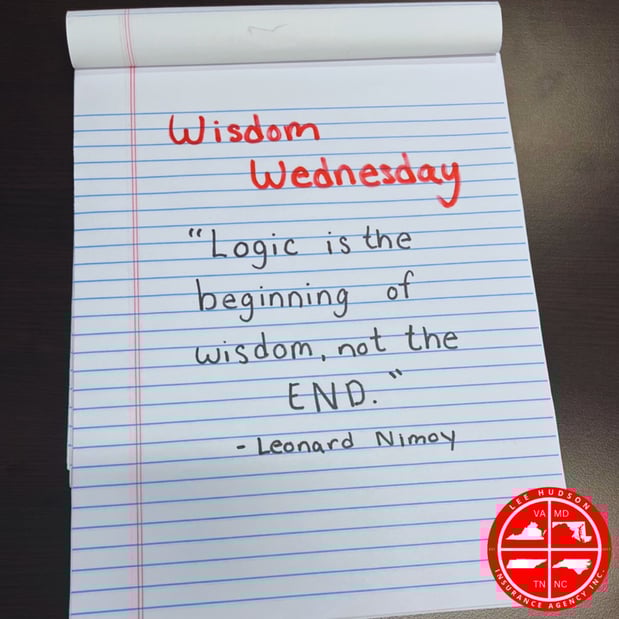 Wisdom
Wednesday
"Logic is the
beginning of
wisdom, not the
END."
- Leonard Nimoy
LEE HUDSON
VA MD
TN NC
INSURANCE AGENCY INC.